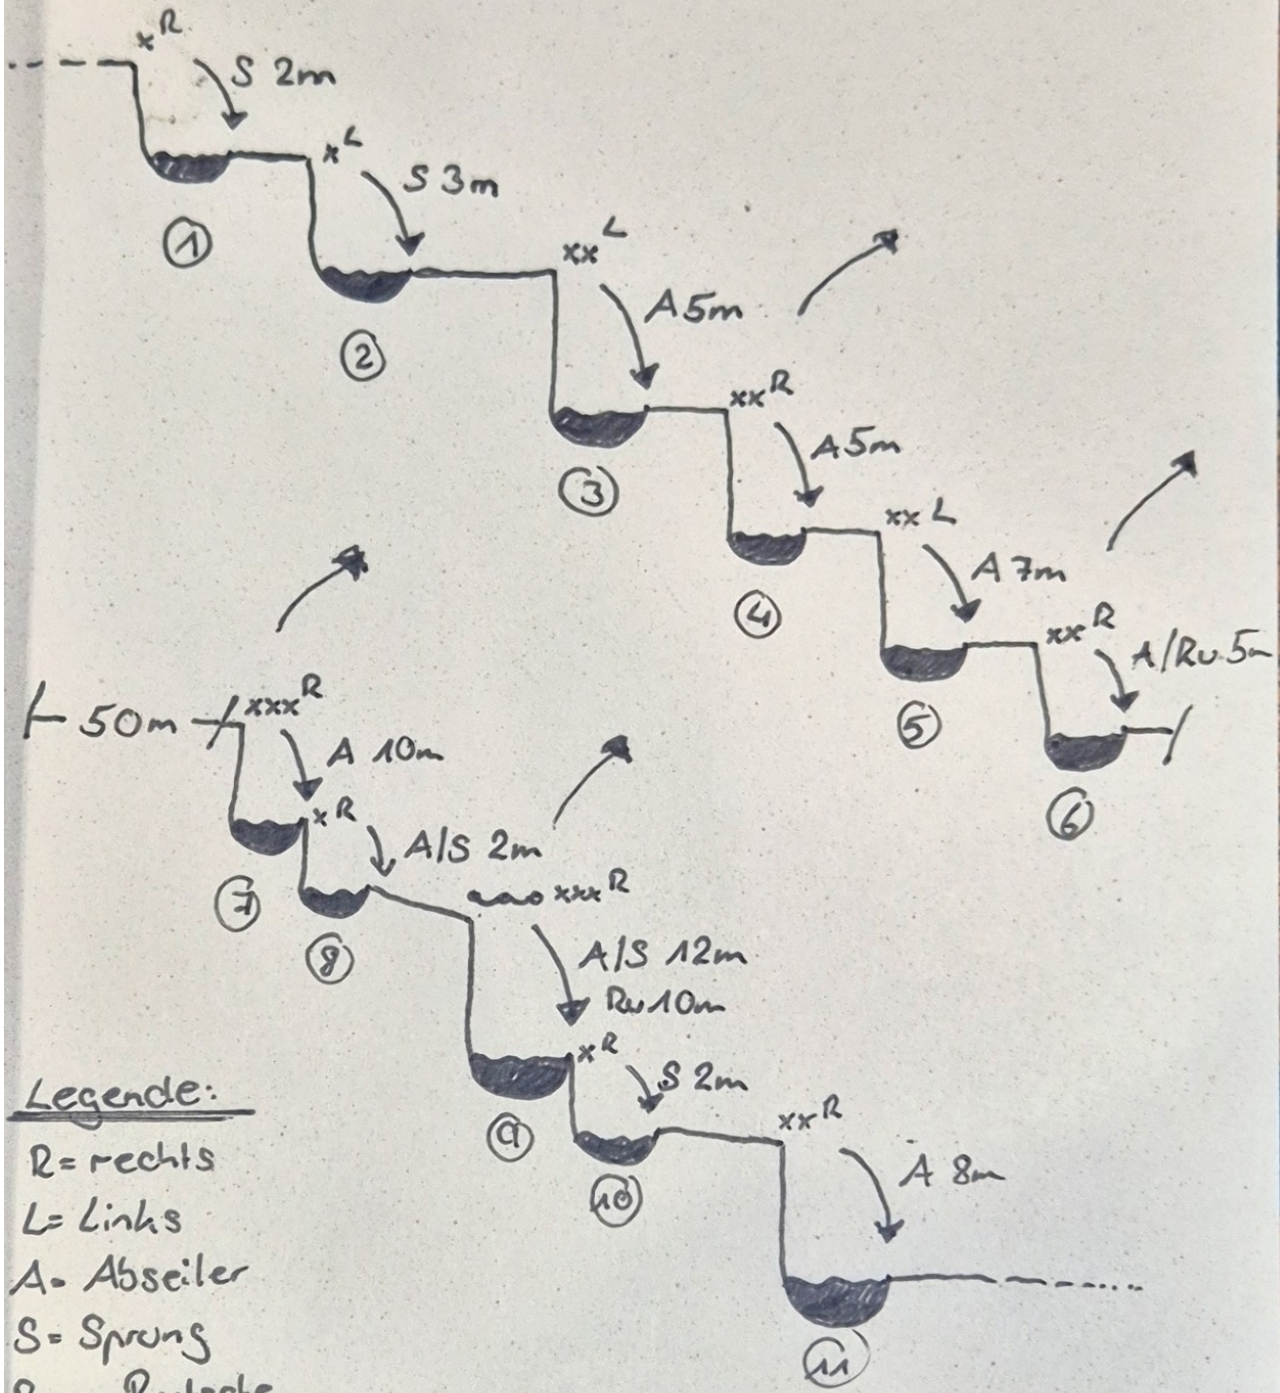 x R
S 2m
x L
S 3m
1
xx L
A 5m
2
xx R
A 5m
3
xx L
A 7m
4
xx R
A/Ru 5m
5
6
50m
xxx R
A 10m
x R
A/S 2m
7
xxx R
8
A/S 12m
Ru 10m
x R
S 2m
9
xx R
10
A 8m
11
Legende:
R= rechts
L= Links
A= Abseiler
S= Sprung